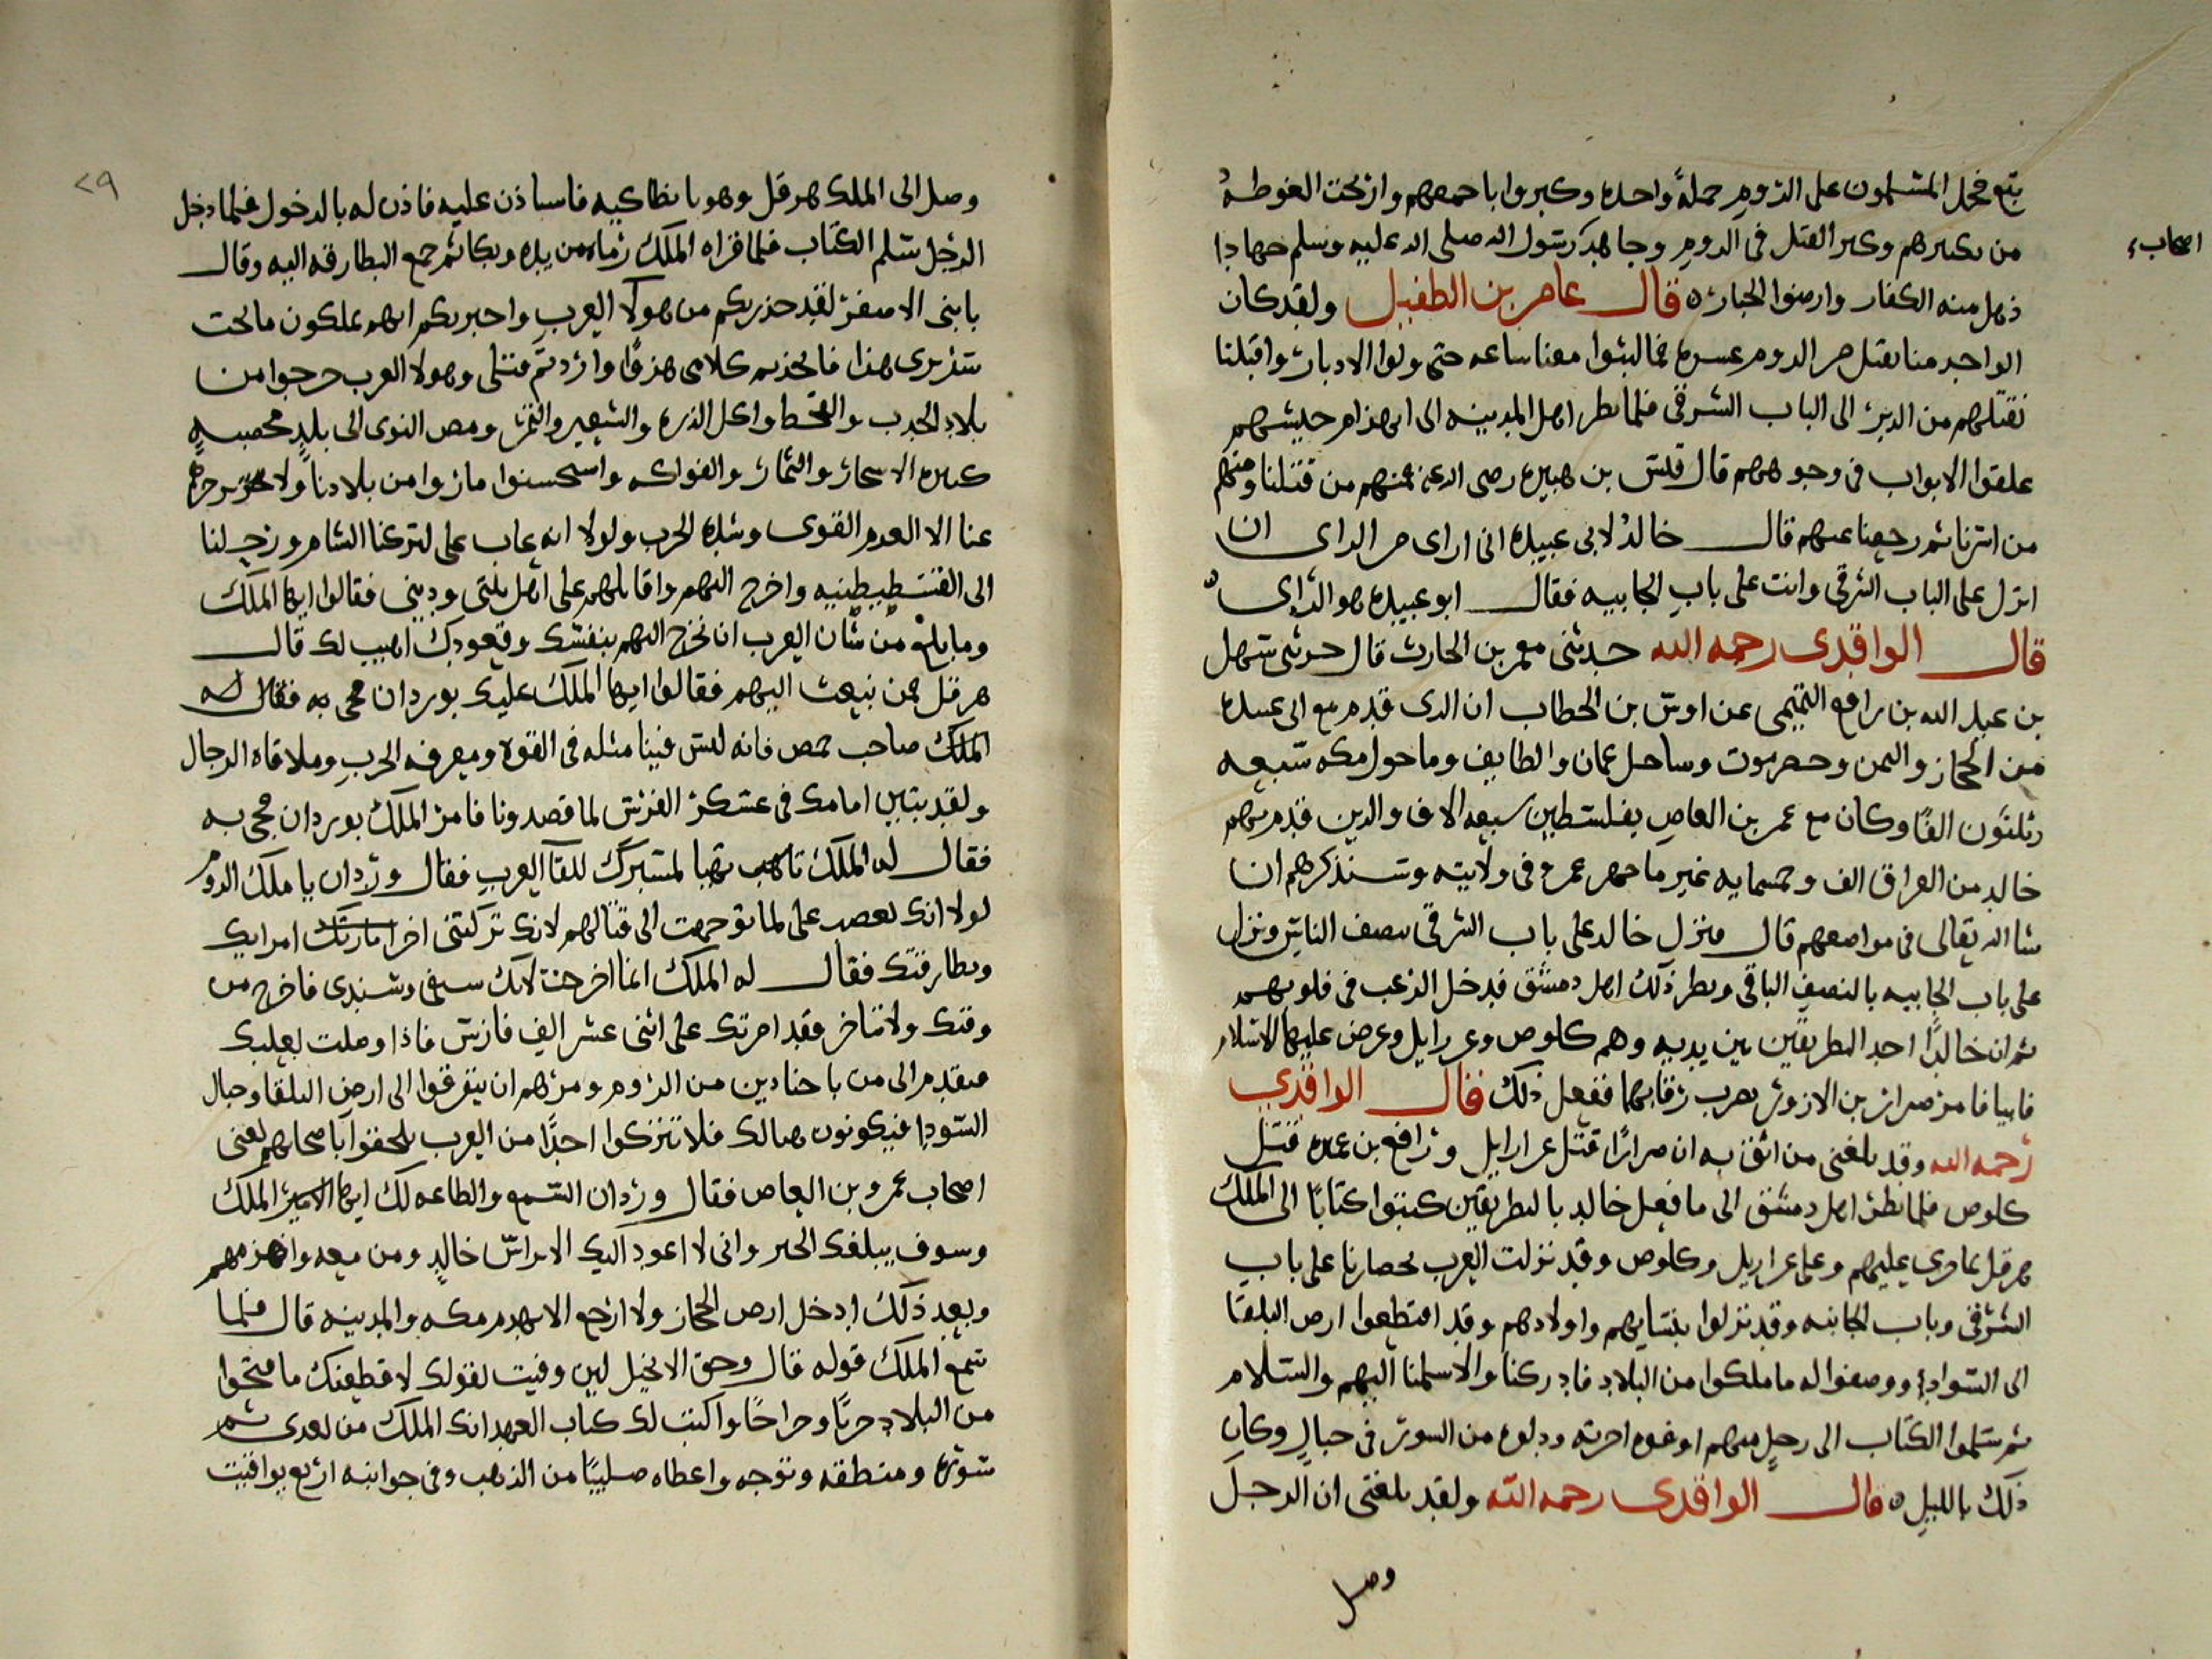 تبع فحمل المسلمون على الروم حملةً واحده وكبروا باجمعهم وارتجت الغوطة
اصحاب
من تكبيرهم وكبر القتل فى الروم وجاهد رسول الله صلى الله عليه وسلم جهادا
ذهل منه الكفار وارضوا الجبار ه قال عامر بن الطفيل ولقد كان
الواحد منا يقتل من الروم عسره فما لبثوا معنا ساعه حتى ولوا الادبار واقبلنا
نقتلهم من الدير الى الباب الشرقى فلما نظر اهل المدينه الى انهزام جيشهم
غلقوا الابواب فى وجوههم قال قيس بن هبيره رضى الله عنه فمنهم من قتلنا ومنهم
من اسرنا ثم رجعنا عنهم قال خالدُ لابى عبيده انى ارى من الراى ان
انزل على الباب الشرقى وانت على باب الجابيه فقال ابو عبيده هو الراى
قال الواقدى رحمه الله حدثنى معمر بن الحارث قال حدثنى سهل
بن عبد الله بن رافع التميمى عن اوس بن الخطاب ان الذى قدم مع ابى عبيده
من الحجاز واليمن وحضرموت وساحل عمان والطايف وما حول مكه سبعه
وثلثون الفًا وكان مع عمر بن العاص بفلسطين سبعه الاف والذين قدم بهم
خالد من العراق الف وخمسمايه غير ما جهز عمر فى ولايته وسنذكرهم ان
شا الله تعالى فى مواضعهم قال فنزل خالد على باب الشرقى بنصف الناس ونزل
على باب الجابيه بالنصف الباقى ونظر ذلك اهل دمشق فدخل الرعب فى قلوبهم
ثم ان خالدًا احضر البطريقين بين يديه وهم كلوص وعزرايل وعرض عليهما الاسلام
فابيا فامر ضرار بن الازور بضرب رقابهما ففعل ذلك فقال الواقدي
رحمه الله وقد بلغنى من اثق به ان ضرارًا قتل عزرايل ورافع بن عميره قتل
كلوص فلما نظر اهل دمشق الى ما فعل خالد بالبطريقين كتبوا كتابًا الى الملك
هرقل بما جرى عليهم وعلى عزاريل وكلوص وقد نزلت العرب بحصارنا على باب
الشرقى وباب الجابيه وقد نزلوا بنسايهم واولادهم وقد اقتطعوا ارض البلقا
الى السواد ووصفوا له ما ملكوا من البلاد فادركنا والا سلمنا اليهم والسلام
ثم سلموا الكتاب الى رجل منهم اوغوه اجرته ودلوه من السور فى حبال وكان
ذلك بالليل ه قال الواقدى رحمه الله ولقد بلغنى ان الرجل
وصل
٢٩
وصل الى الملك هرقل وهو بانطاكيه فاستاذن عليه فاذن له بالدخول فلما دخل
الرجل سلم الكتاب فلما قراه الملك رماه من يده وبكا ثم جمع البطارقه اليه وقال
يا بنى الاصفر لقد حذرتكم من هولا العرب واخبرتكم انهم يملكون ما تحت
سريرى هذا فاتخذتم كلامى هزوًا واردتم قتلى وهولا العرب خرجوا من
بلاد الجدب والقحط واكل الذره والشعير والتمر ومص النوى الى بلدٍ مخصبهٍ
كثيره الاشجار والثمار والفواكه واستحسنوا ما راوا من بلادنا ولا يخرجهم
عنا الا العزم القوى وشدة الحرب ولولا انه عاب على لتركنا الشام ورحلنا
الى القسطيطنيه واخرج اليهم واقاتلهم على اهل ملتى ودينى فقالوا ايها الملك
وما بلغ من شان العرب ان تخرج اليهم بنفسك وقعودك اهيب لك قال
هرقل فمن نبعث اليهم فقالوا ايها الملك عليك بوردان فجى به فقال له
الملك صاحب حمص فانه ليس فينا مثله فى القوه ومعرفه الحرب وملاقاه الرجال
ولقد تبين امامك فى عسكر الفرس لما قصدونا فامر الملك بوردان فجى به
فقال له الملك تاهب لمسيرك للقآ العرب فقال وردان يا ملك الروم
لولا انك لعضد على لما توجهت الى قتالهم لانك تركتنى اخر امرايك
وبطارقتك فقال له الملك انما اخرجت لانك سيفى وسندى فاخرج من
وقتك ولا تتاخر فقد امرتك على اثنى عشر الف فارس فاذا وصلت بعلبك
فتقدم الى من باجنادين من الروم ومرهم ان يتفرقوا الى ارض البلقا وجبال
السودا فيكونون هنالك فلا تتركوا احدًا من العرب يلحقوا باصحابهم يعنى
اصحاب عمرو بن العاص فقال وردان السمع والطاعه لك ايها الملك
وسوف يبلغك الخبر وانى لا اعود اليك الا براس خالد ومن معه واهزمهم
وبعد ذلك ادخل ارض الحجاز ولا ارجع الا بهدم مكه والمدينه قال فلما
سمع الملك قوله قال وحق الانجيل لين وفيت بقولك لاقطعنك ما فتحوا
من البلاد حربًا وخراجًا واكتب لك كتاب العهد انك الملك من بعدى ثم
سوره ومنطقه وتوجه واعطاه صليبًا من الذهب وفى جوانبه اربع يواقيت